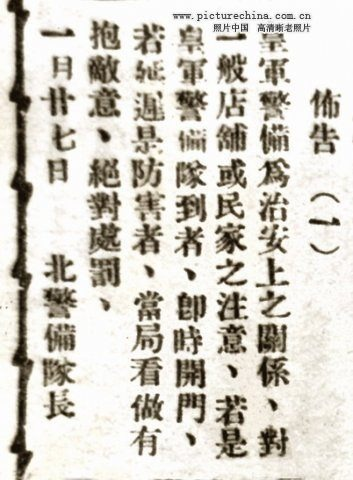 www.picturechina.com.cn
照片中国 高清晰老照片
佈告（一）
皇軍警備爲治安上之關係、對
一般店舖或民家之注意、若是
皇軍警備隊到者、卽時開門、
若延遲是防害者、當局看做有
抱敵意、絕對處罰、
一月廿七日 北警備隊長